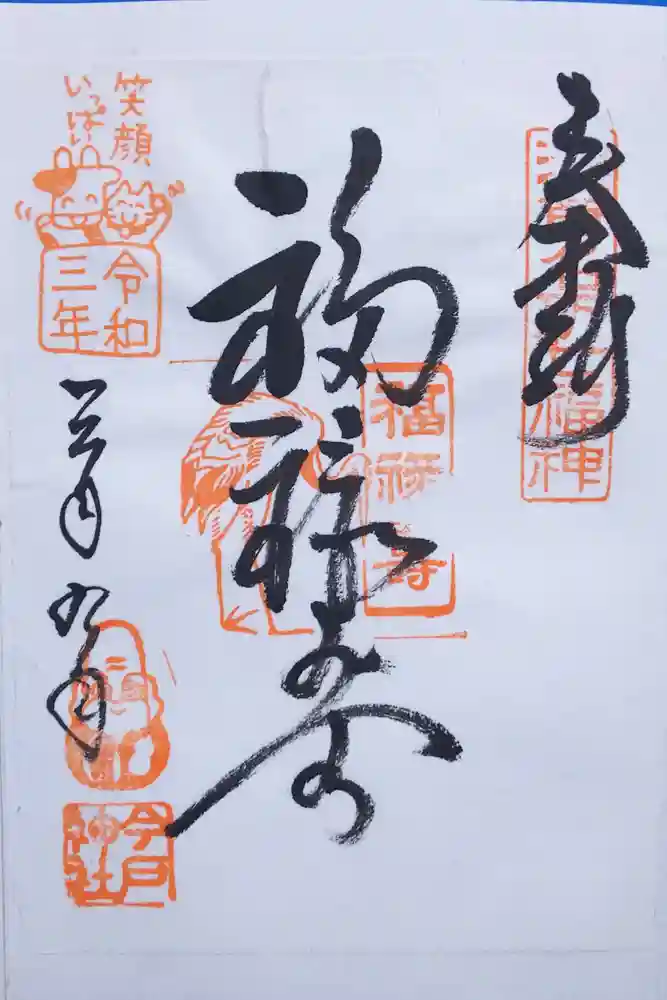 奉拝
浅草名所七福神
福禄寿
福禄寿
笑顔
いっぱい
令和
三年
三月九日
今戸
神社